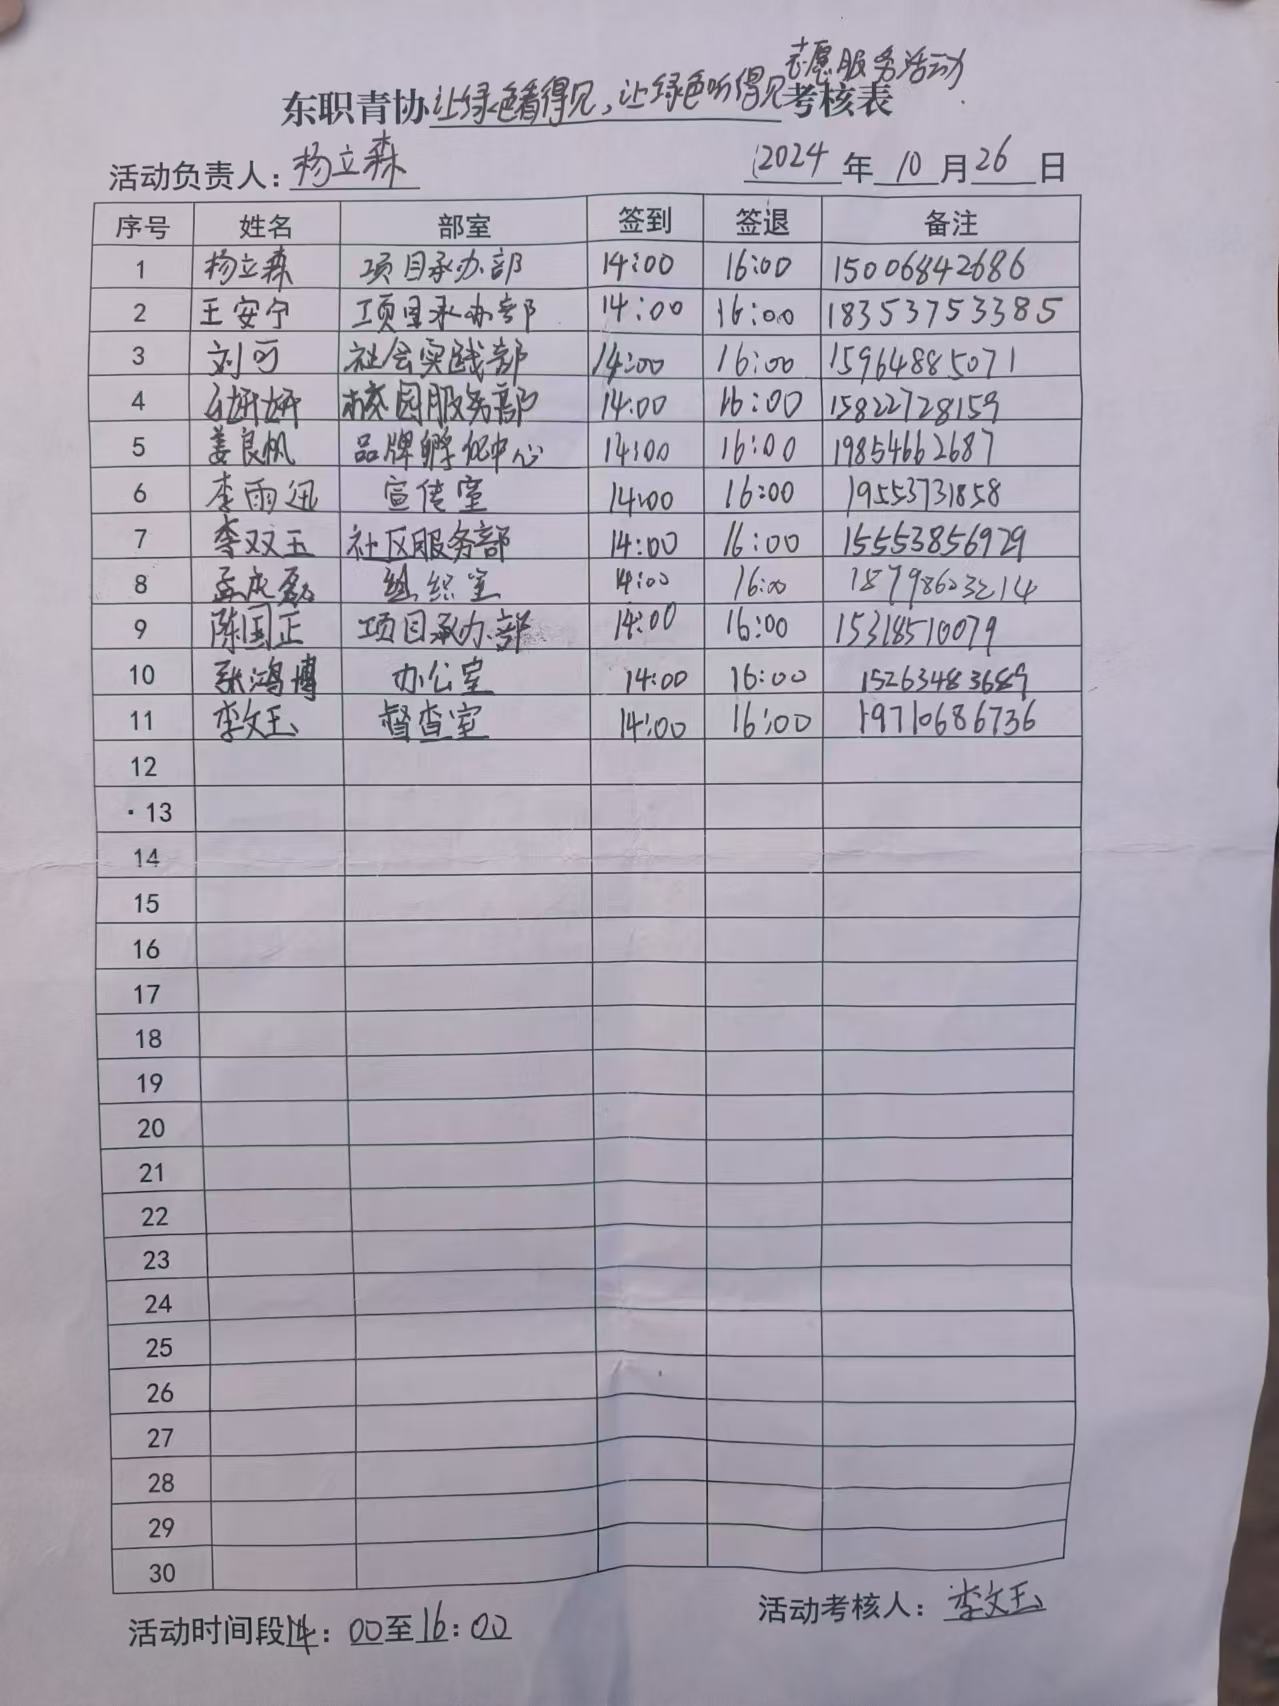 志愿服务活动
东职青协让绿色看得见,让绿色听得见考核表
活动负责人：杨立森 2024年10月26日
序号 姓名 部室 签到 签退 备注
1 杨立森 项目承办部 14:00 16:00 15006842686
2 王安宁 项目承办部 14:00 16:00 18353753385
3 刘可 社会实践部 14:00 16:00 15964885071
4 妍妍 校园服务部 14:00 16:00 15822728159
5 姜良帆 品牌孵化中心 14:00 16:00 19854662687
6 李雨迅 宣传室 14:00 16:00 19553731858
7 李双玉 社区服务部 14:00 16:00 15553856929
8 孟庆磊 组织室 14:00 16:00 18798623214
9 陈国正 项目承办部 14:00 16:00 15318510079
10 张鸿博 办公室 14:00 16:00 15263483689
11 李文玉 督查室 14:00 16:00 19710686736
12
13
14
15
16
17
18
19
20
21
22
23
24
25
26
27
28
29
30
活动时间段14：00至16：00 活动考核人：李文玉